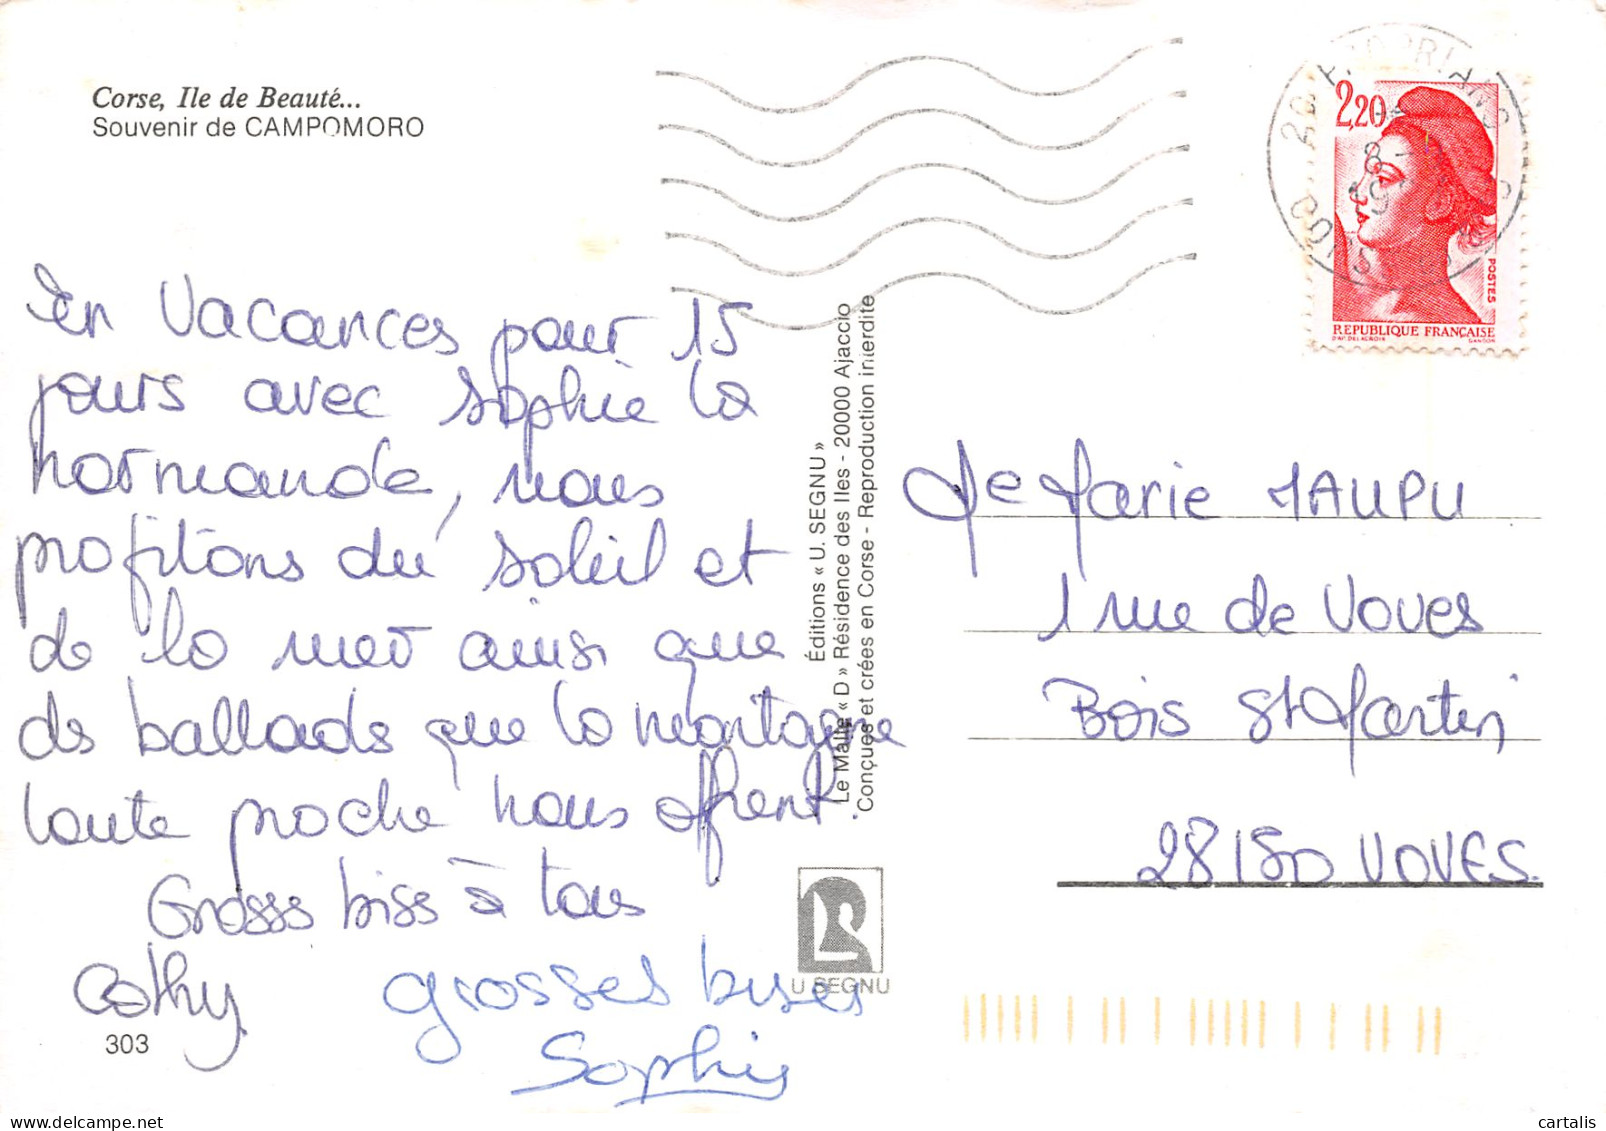 Corse, Ile de Beauté...
Souvenir de CAMPOMORO
En Vacances pour 15
jours avec Sophie la
normande, nous
profitons du soleil et
de la mer ainsi que
ds ballads que la montagne
toute proche nous offrent.
Grosss biss à tous
Cathy
grosses bises
Sophie
303
Éditions « U. SEGNU »
Le Maille « D » Résidence des Iles - 20000 Ajaccio
Conçues et crées en Corse - Reproduction interdite
U SEGNU
2,20
POSTES
REPUBLIQUE FRANÇAISE
D'AP. DELACROIX GANDON
Me Marie MAUPU
1 rue de Voves
Bois St Martin
28150 VOVES.
cartalis